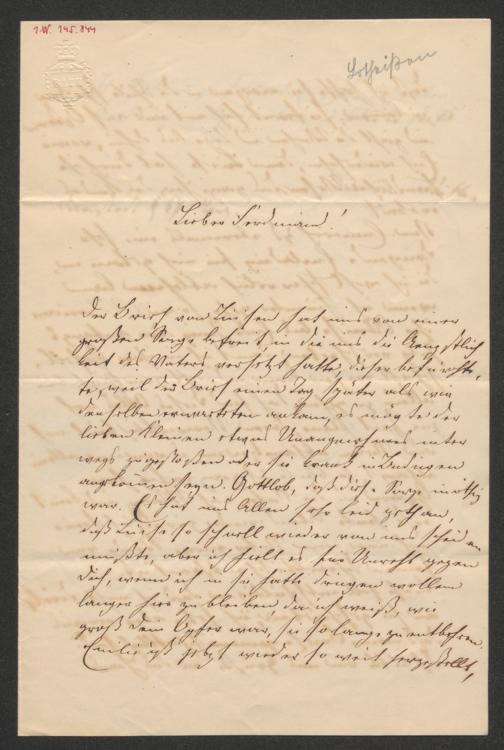 I.N. 145.844
Lotheißen
Lieber Ferdinand!
Der Brief von Luisen hat uns von einer
großen Sorge befreit in die uns die Aengstlich
keit des Vaters versetzt hatte, dieser befürchte
te, weil der Brief einen Tag später als wir
denselben erwarteten ankam, es mögte der
lieben Kleinen etwas Unangenehmes unter
wegs zugestoßen oder sie krank in Büdingen
angekommen seyn. Gottlob, daß diese Sorge unnöthig
war. Es hat uns Allen sehr leid gethan,
daß Luise so schnell wieder von uns scheiden
mußte, aber ich hielt es für Unrecht gegen
Dich, wenn ich in sie hätte dringen wollen
länger hier zu bleiben, da ich weiß, wie
groß dein Opfer war, sie so lange zu entbehren.
Emilie ist jetzt wieder so weit hergestellt,